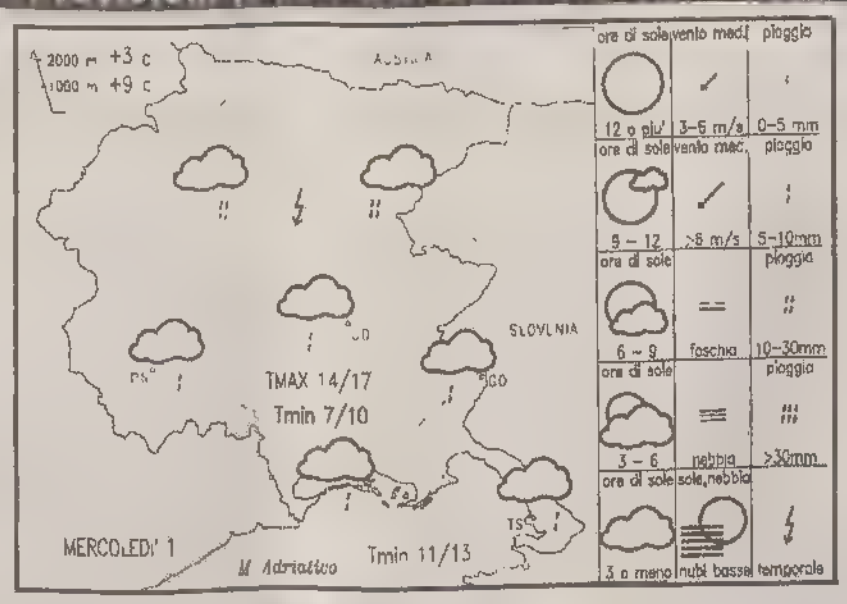 2000 m +3 c
1000 m +9 c
AUSTRIA
SLOVENIA
UD
GO
TMAX 14/17
Tmin 7/10
TS
MERCOLEDI' 1
M Adriatico
Tmin 11/13
ore di sole vento med. pioggia
12 o piu' 3-6 m/s 0-5 mm
ore di sole vento med. pioggia
9 - 12 >6 m/s 5-10mm
ore di sole pioggia
6 - 9 foschia 10-30mm
ore di sole pioggia
3 - 6 nebbia >30mm
ore di sole sole,nebbia
3 o meno nubi basse temporale